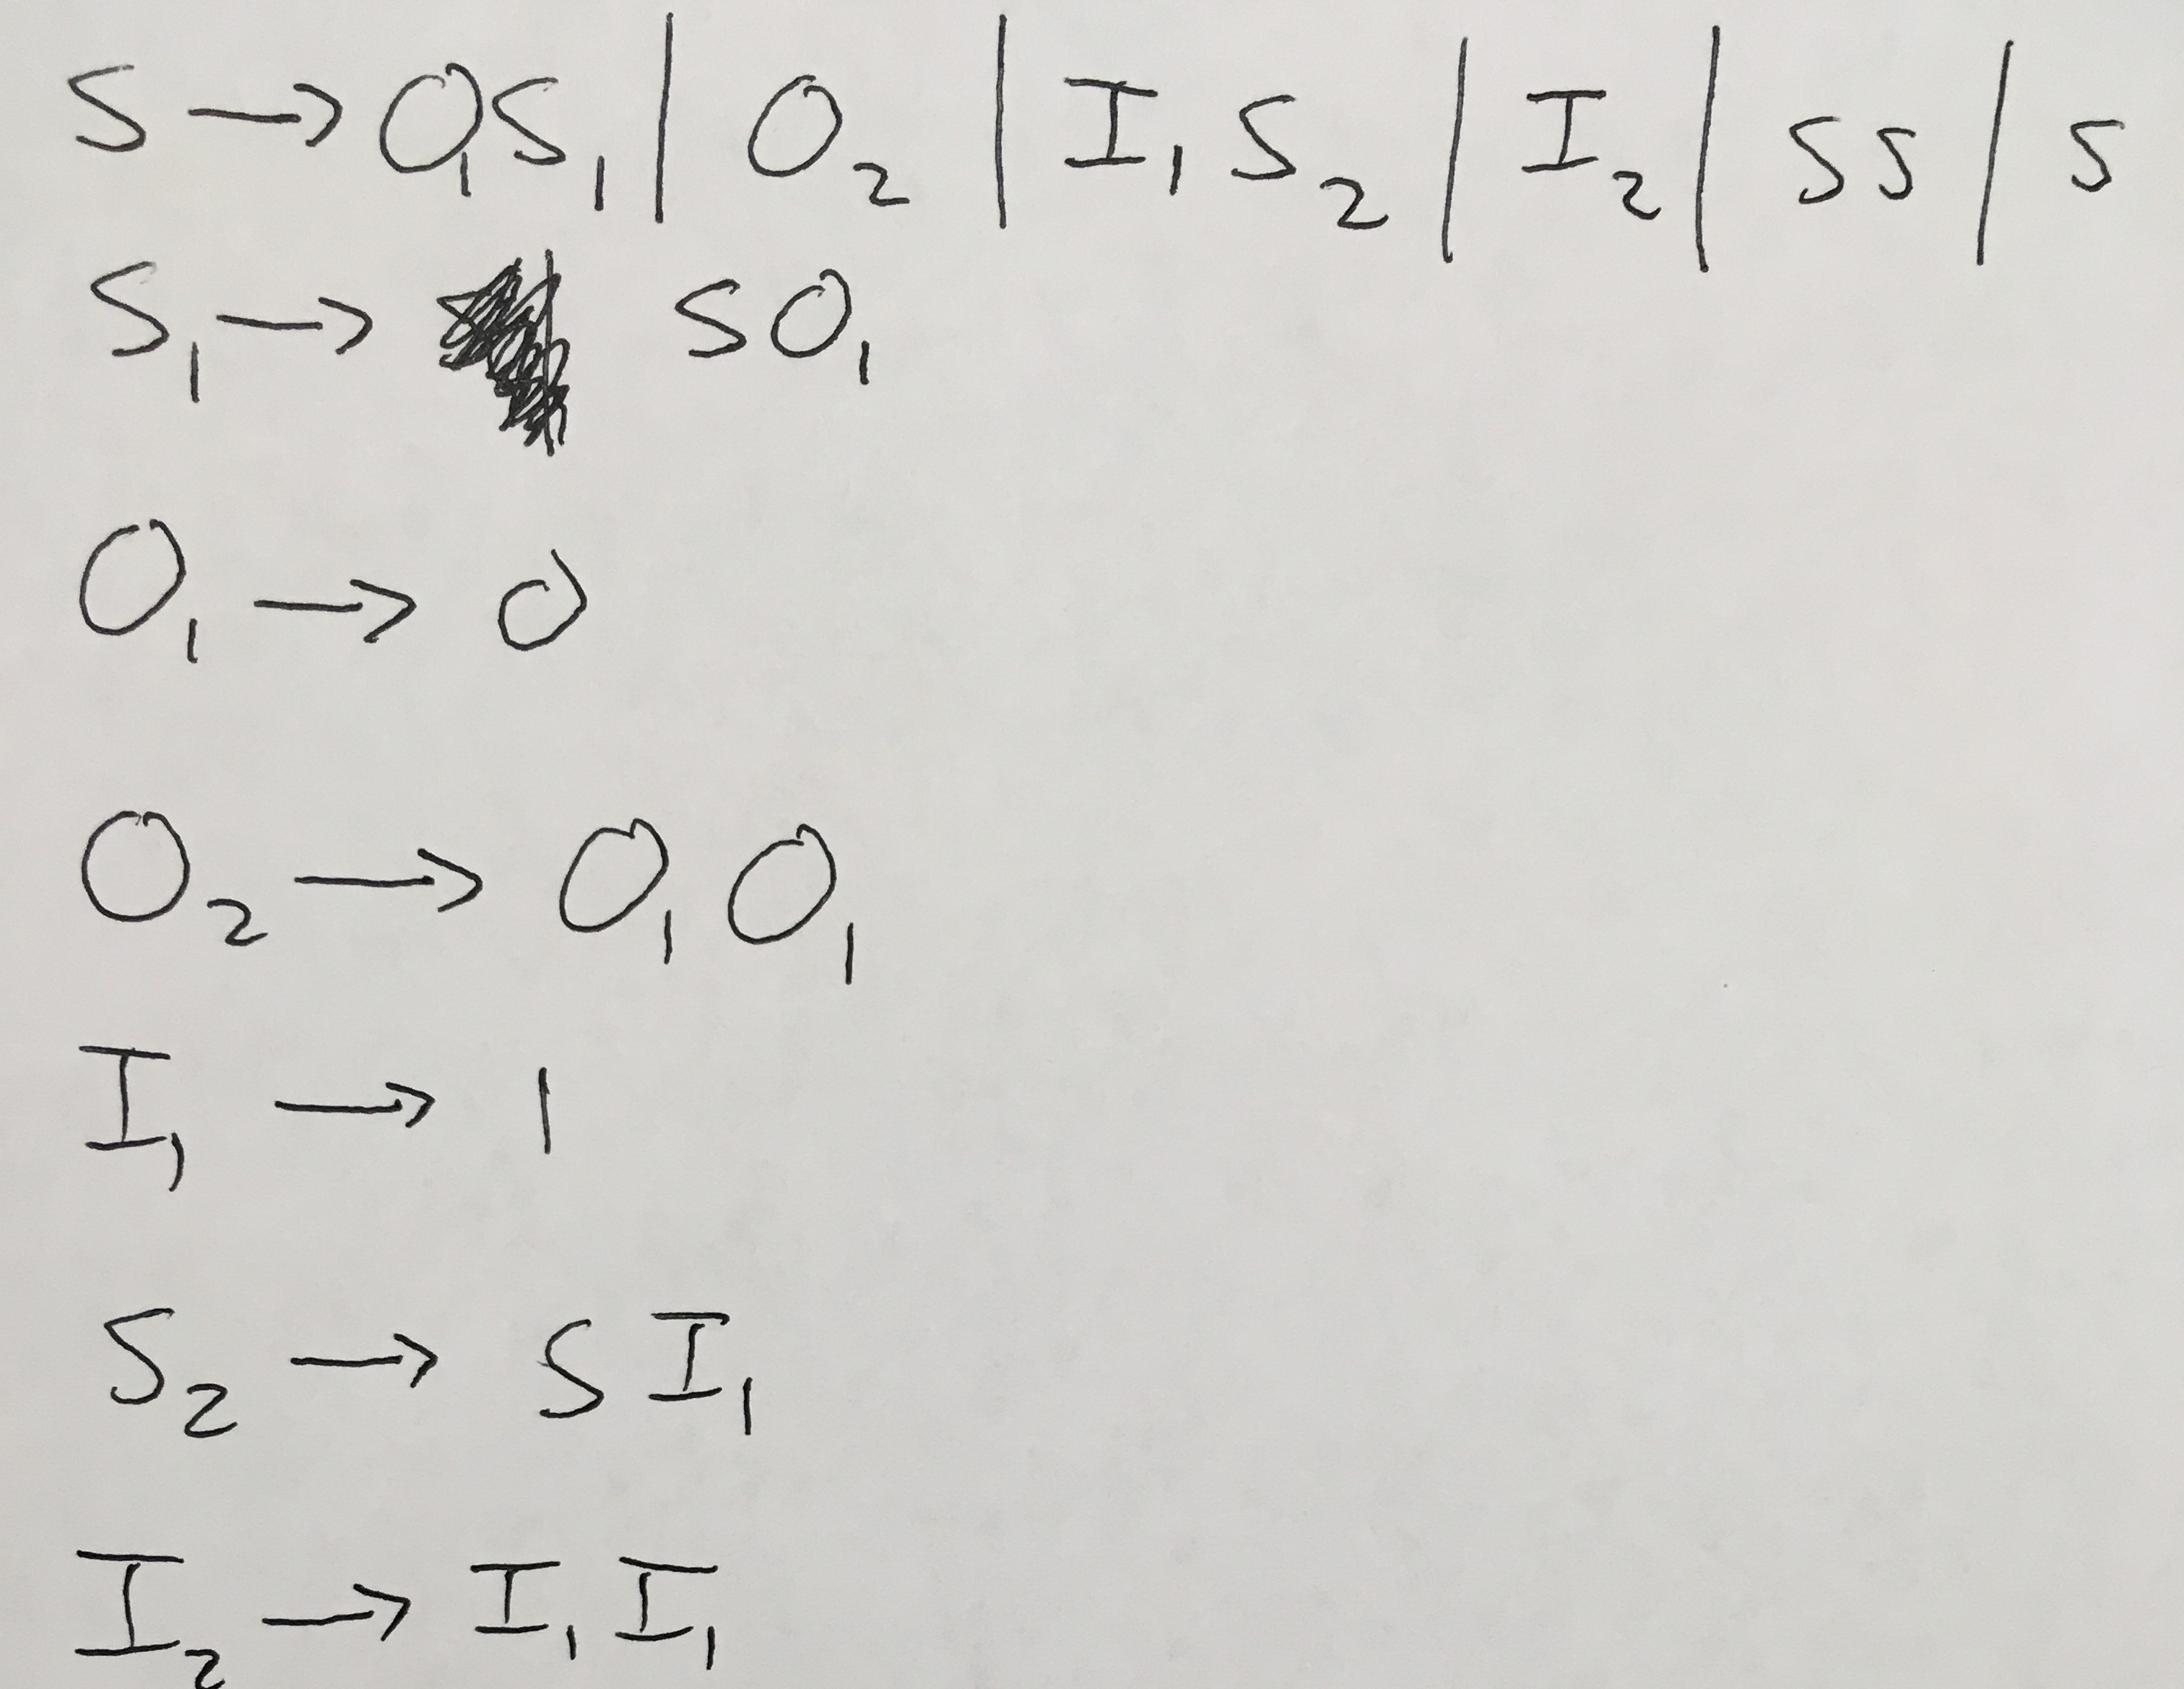 S → O₁S₁ | O₂ | I₁S₂ | I₂ | SS | S
S₁ → SO₁
O₁ → 0
O₂ → O₁O₁
I₁ → 1
S₂ → SI₁
I₂ → I₁I₁